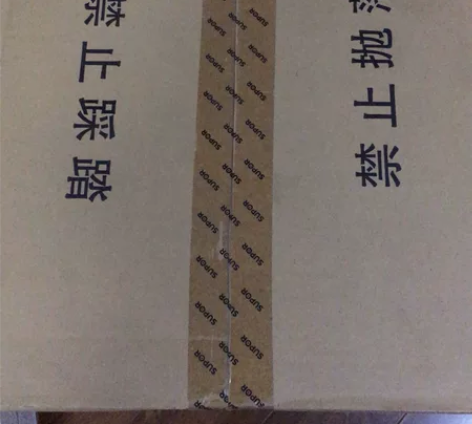 禁止踩踏
禁止抛
SUPOR SUPOR SUPOR SUPOR SUPOR SUPOR SUPOR SUPOR SUPOR